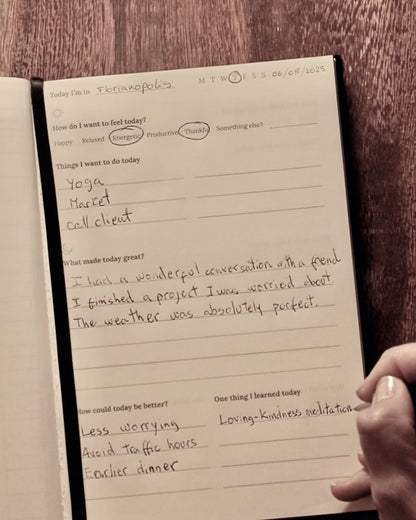 Today I'm in Florianopolis M T W T F S S 06/05/2025
How do I want to feel today?
Happy Relaxed Energetic Productive Thankful Something else?
Things I want to do today
Yoga
Market
call client
What made today great?
I had a wonderful conversation with a friend
I finished a project I was worried about
The weather was absolutely perfect.
How could today be better?
Less worrying
Avoid traffic hours
Earlier dinner
One thing I learned today
Loving-kindness meditation